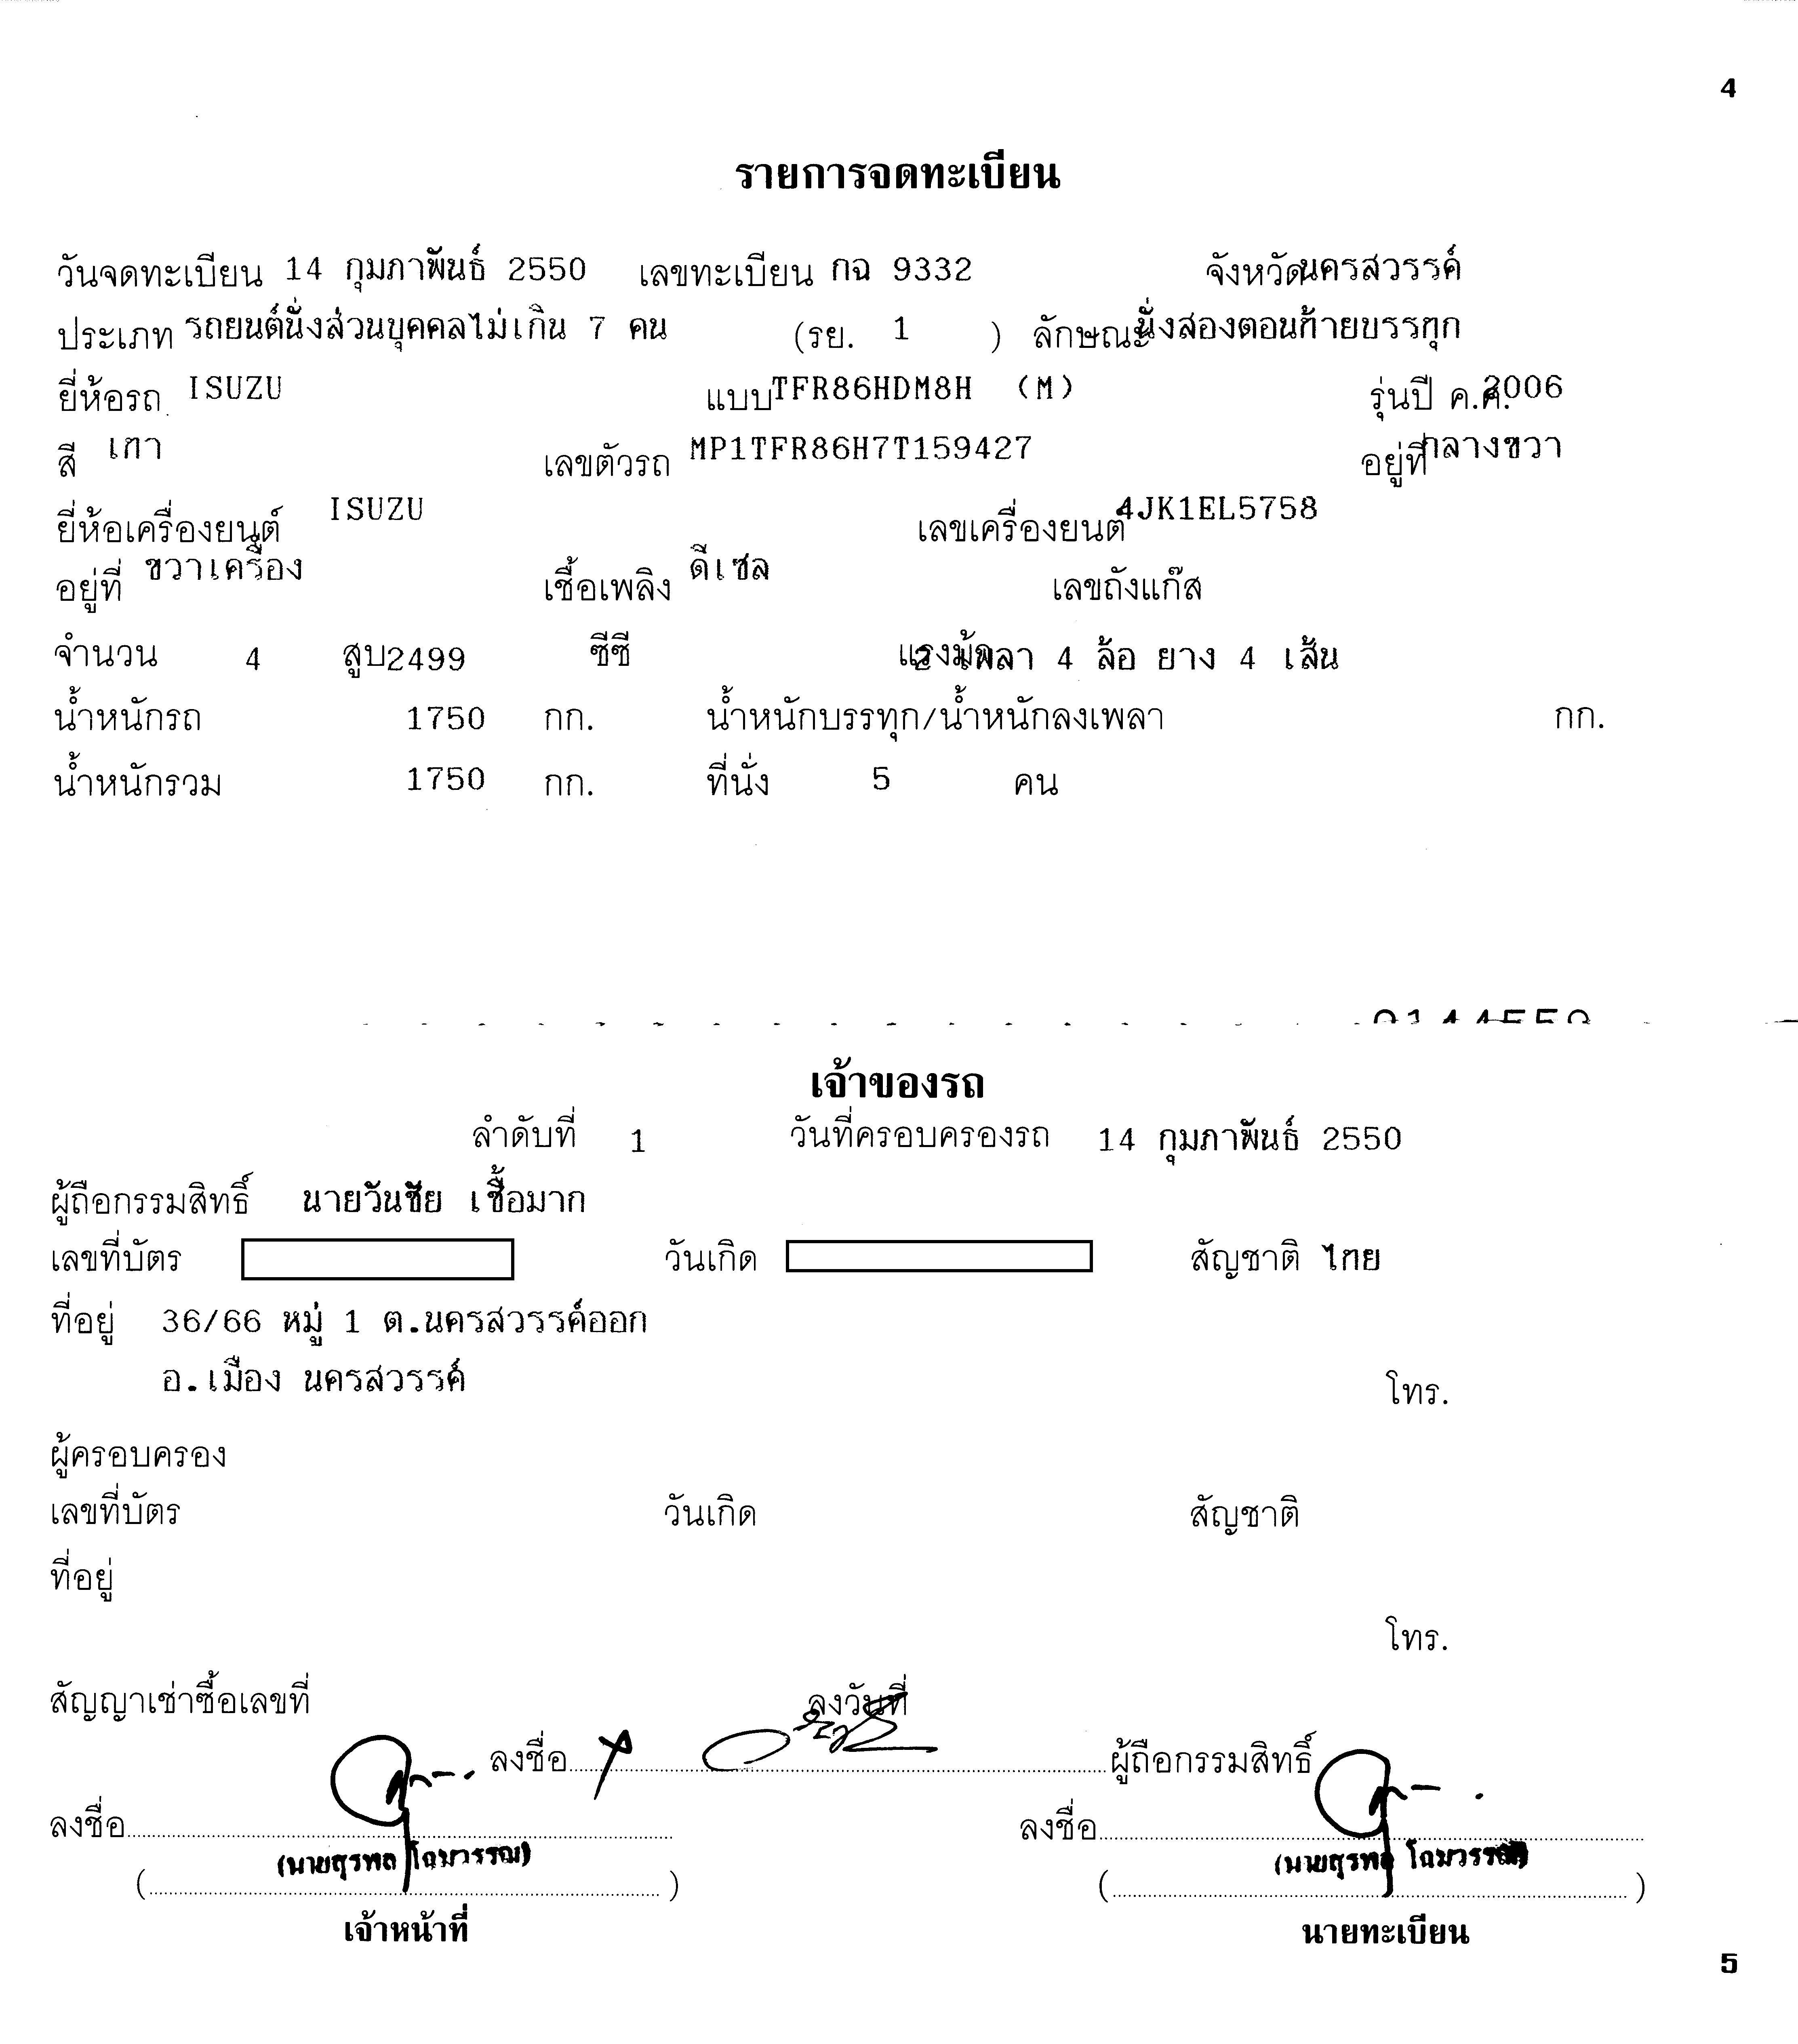 4
รายการจดทะเบียน
วันจดทะเบียน 14 กุมภาพันธ์ 2550 เลขทะเบียน กฉ 9332 จังหวัดนครสวรรค์
ประเภท รถยนต์นั่งส่วนบุคคลไม่เกิน 7 คน (รย. 1 ) ลักษณะนั่งสองตอนท้ายบรรทุก
ยี่ห้อรถ ISUZU แบบTFR86HDM8H (M) รุ่นปี ค.ศ.2006
สี เทา เลขตัวรถ MP1TFR86H7T159427 อยู่ที่กลางขวา
ยี่ห้อเครื่องยนต์ ISUZU เลขเครื่องยนต์4JK1EL5758
อยู่ที่ ขวาเครื่อง เชื้อเพลิง ดีเซล เลขถังแก๊ส
จำนวน 4 สูบ2499 ซีซี แรงม้า 2 เพลา 4 ล้อ ยาง 4 เส้น
น้ำหนักรถ 1750 กก. น้ำหนักบรรทุก/น้ำหนักลงเพลา กก.
น้ำหนักรวม 1750 กก. ที่นั่ง 5 คน
เจ้าของรถ
ลำดับที่ 1 วันที่ครอบครองรถ 14 กุมภาพันธ์ 2550
ผู้ถือกรรมสิทธิ์ นายวันชัย เชื้อมาก
เลขที่บัตร วันเกิด สัญชาติ ไทย
ที่อยู่ 36/66 หมู่ 1 ต.นครสวรรค์ออก
อ.เมือง นครสวรรค์ โทร.
ผู้ครอบครอง
เลขที่บัตร วันเกิด สัญชาติ
ที่อยู่
โทร.
สัญญาเช่าซื้อเลขที่ ลงวันที่
ลงชื่อ ผู้ถือกรรมสิทธิ์
ลงชื่อ ลงชื่อ
(นายสุรพล โฉมวรรณ) (นายสุรพล โฉมวรรณ)
เจ้าหน้าที่ นายทะเบียน
5